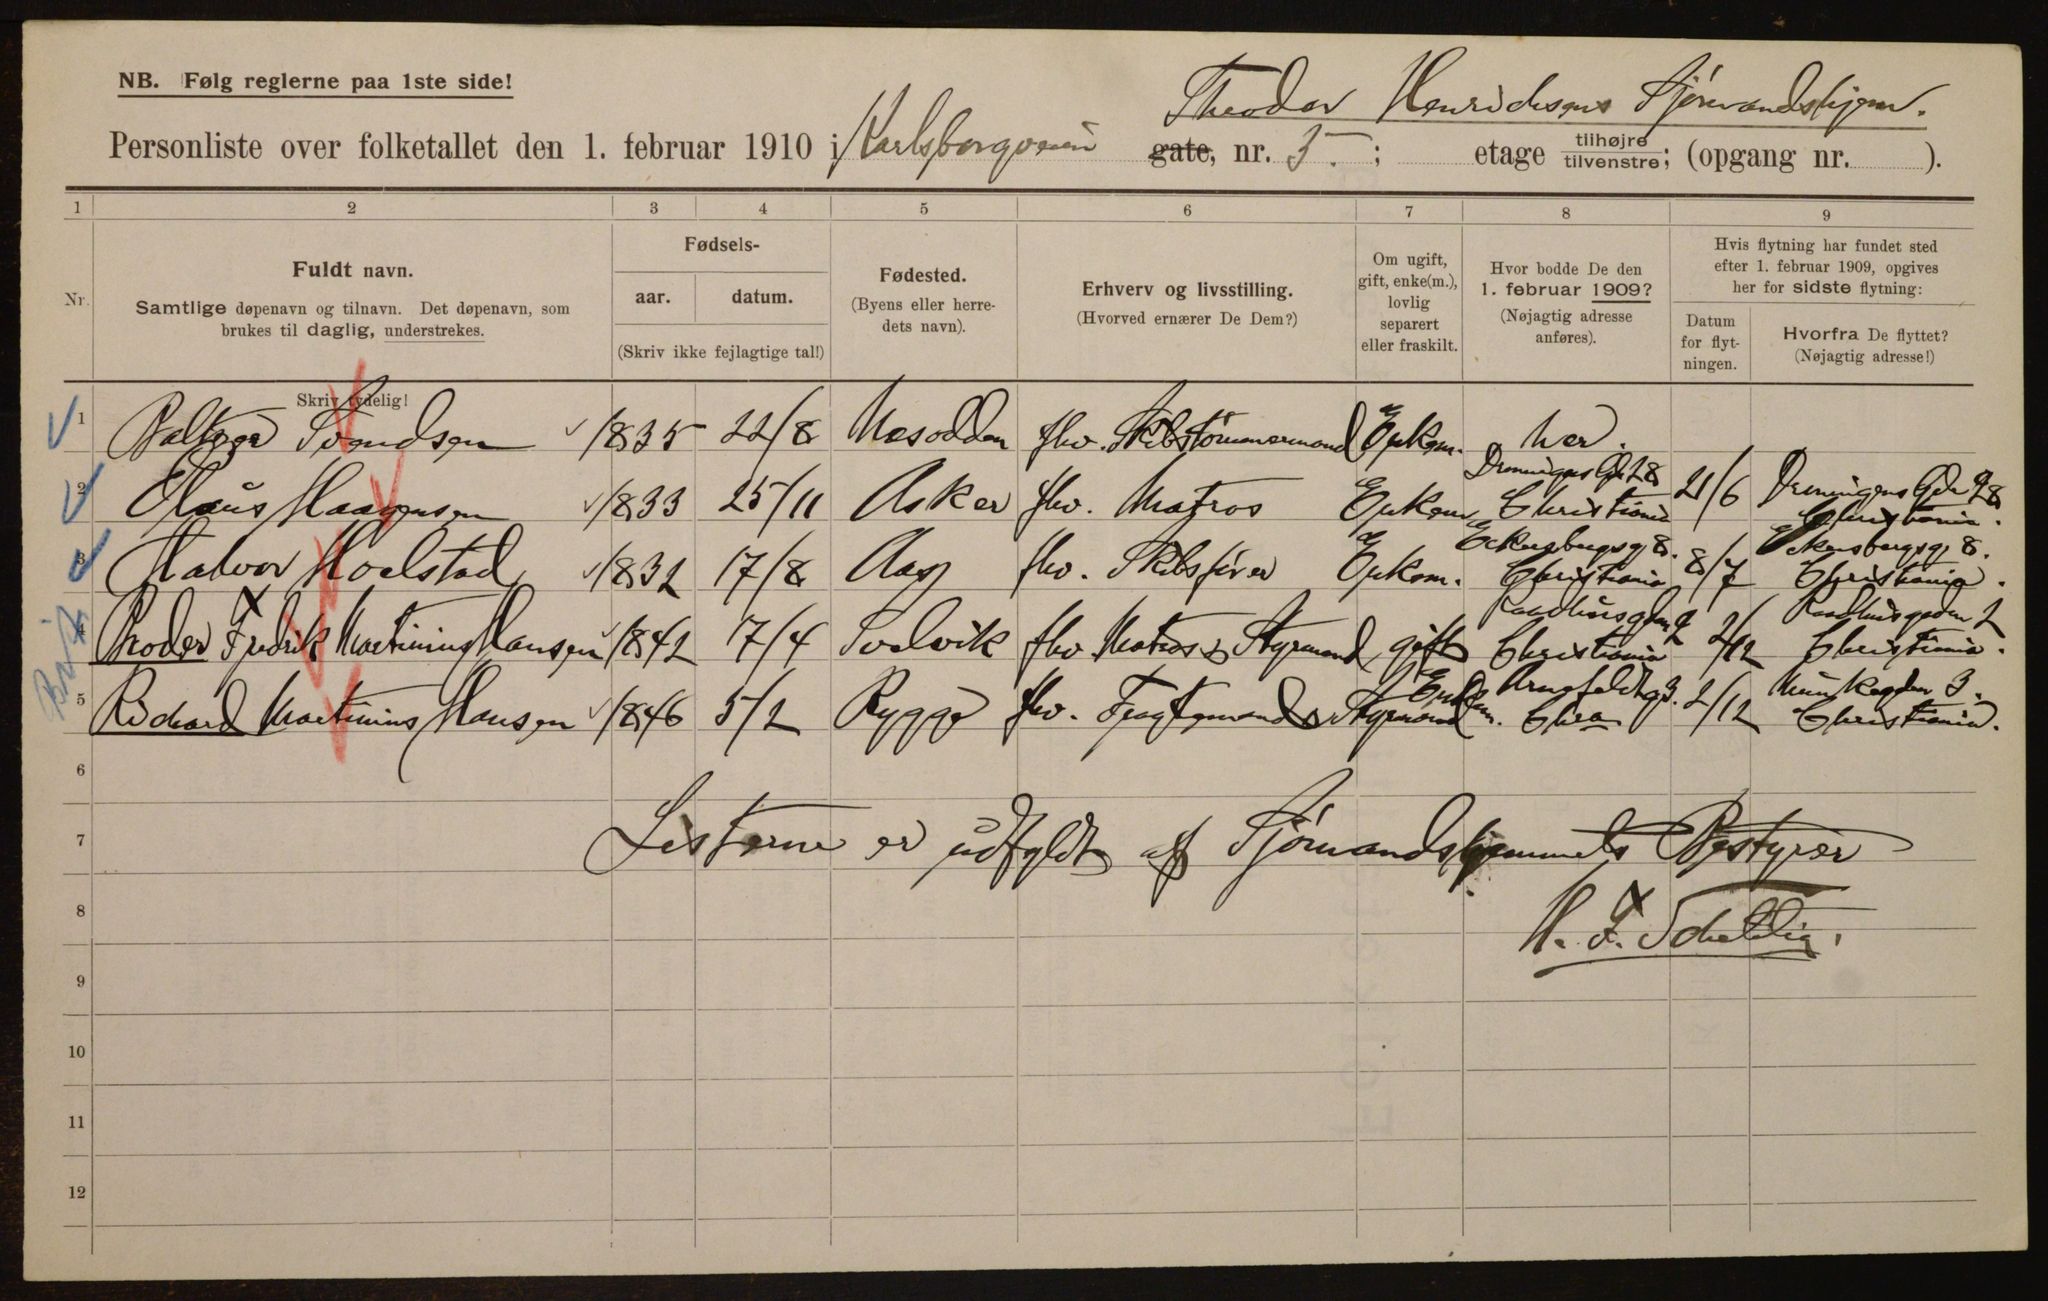 NB. Følg reglerne paa 1ste side!
Theodor Henrichsens Sjömandshjem.
Personliste over folketallet den 1. februar 1910 i Karlsborgveien gate, nr. 5. ; etage tilhøjre tilvenstre; (opgang nr. ).
1 2 3 4 5 6 7 8 9
Nr.
Fuldt navn.
Samtlige døpenavn og tilnavn. Det døpenavn, som
brukes til daglig, understrekes.
Fødsels-
aar. datum.
(Skriv ikke fejlagtige tal!)
Fødested.
(Byens eller herre-
dets navn).
Erhverv og livsstilling.
(Hvorved ernærer De Dem?)
Om ugift,
gift, enke(m.),
lovlig
separert
eller fraskilt.
Hvor bodde De den
1. februar 1909?
(Nøjagtig adresse
anføres).
Hvis flytning har fundet sted
efter 1. februar 1909, opgives
her for sidste flytning:
Datum
for flyt-
ningen.
Hvorfra De flyttet?
(Nøjagtig adresse!)
Skriv tydelig!
1 Svendsen 1835 22/8 Næsodden fhv. Skibstömmermand Enkem. her.
2 Claus Haagensen 1833 25/11 Asker fhv. Matros Enkem. Dronningens Gd 28 Christiania 21/6 Dronningens Gde 28 Christiania.
3 Halvor Hoelstad 1832 17/8 Aas fhv. Skibsförer Enkem. Eckersbergsg 8. Christiania 8/7 Eckersbergsg 8. Christiania.
4 Fredrik Martinius Hansen 1842 17/4 Svelvik fhv Matros & Styrmand gift Raadhusgden 2 Christiania 2/12 Raadhusgaden 2 Christiania.
5 Richard Martinius Hansen 1846 5/2 Rygge fhv. Fragtemand & Styrmand Enkem. Armfeldtsg 3. Chra 2/12 Munkegden 3. Christiania.
6
7 Listerne er udfyldt af Sjömandshjemmets Bestyrer
8 H. F. Scheltig.
9
10
11
12